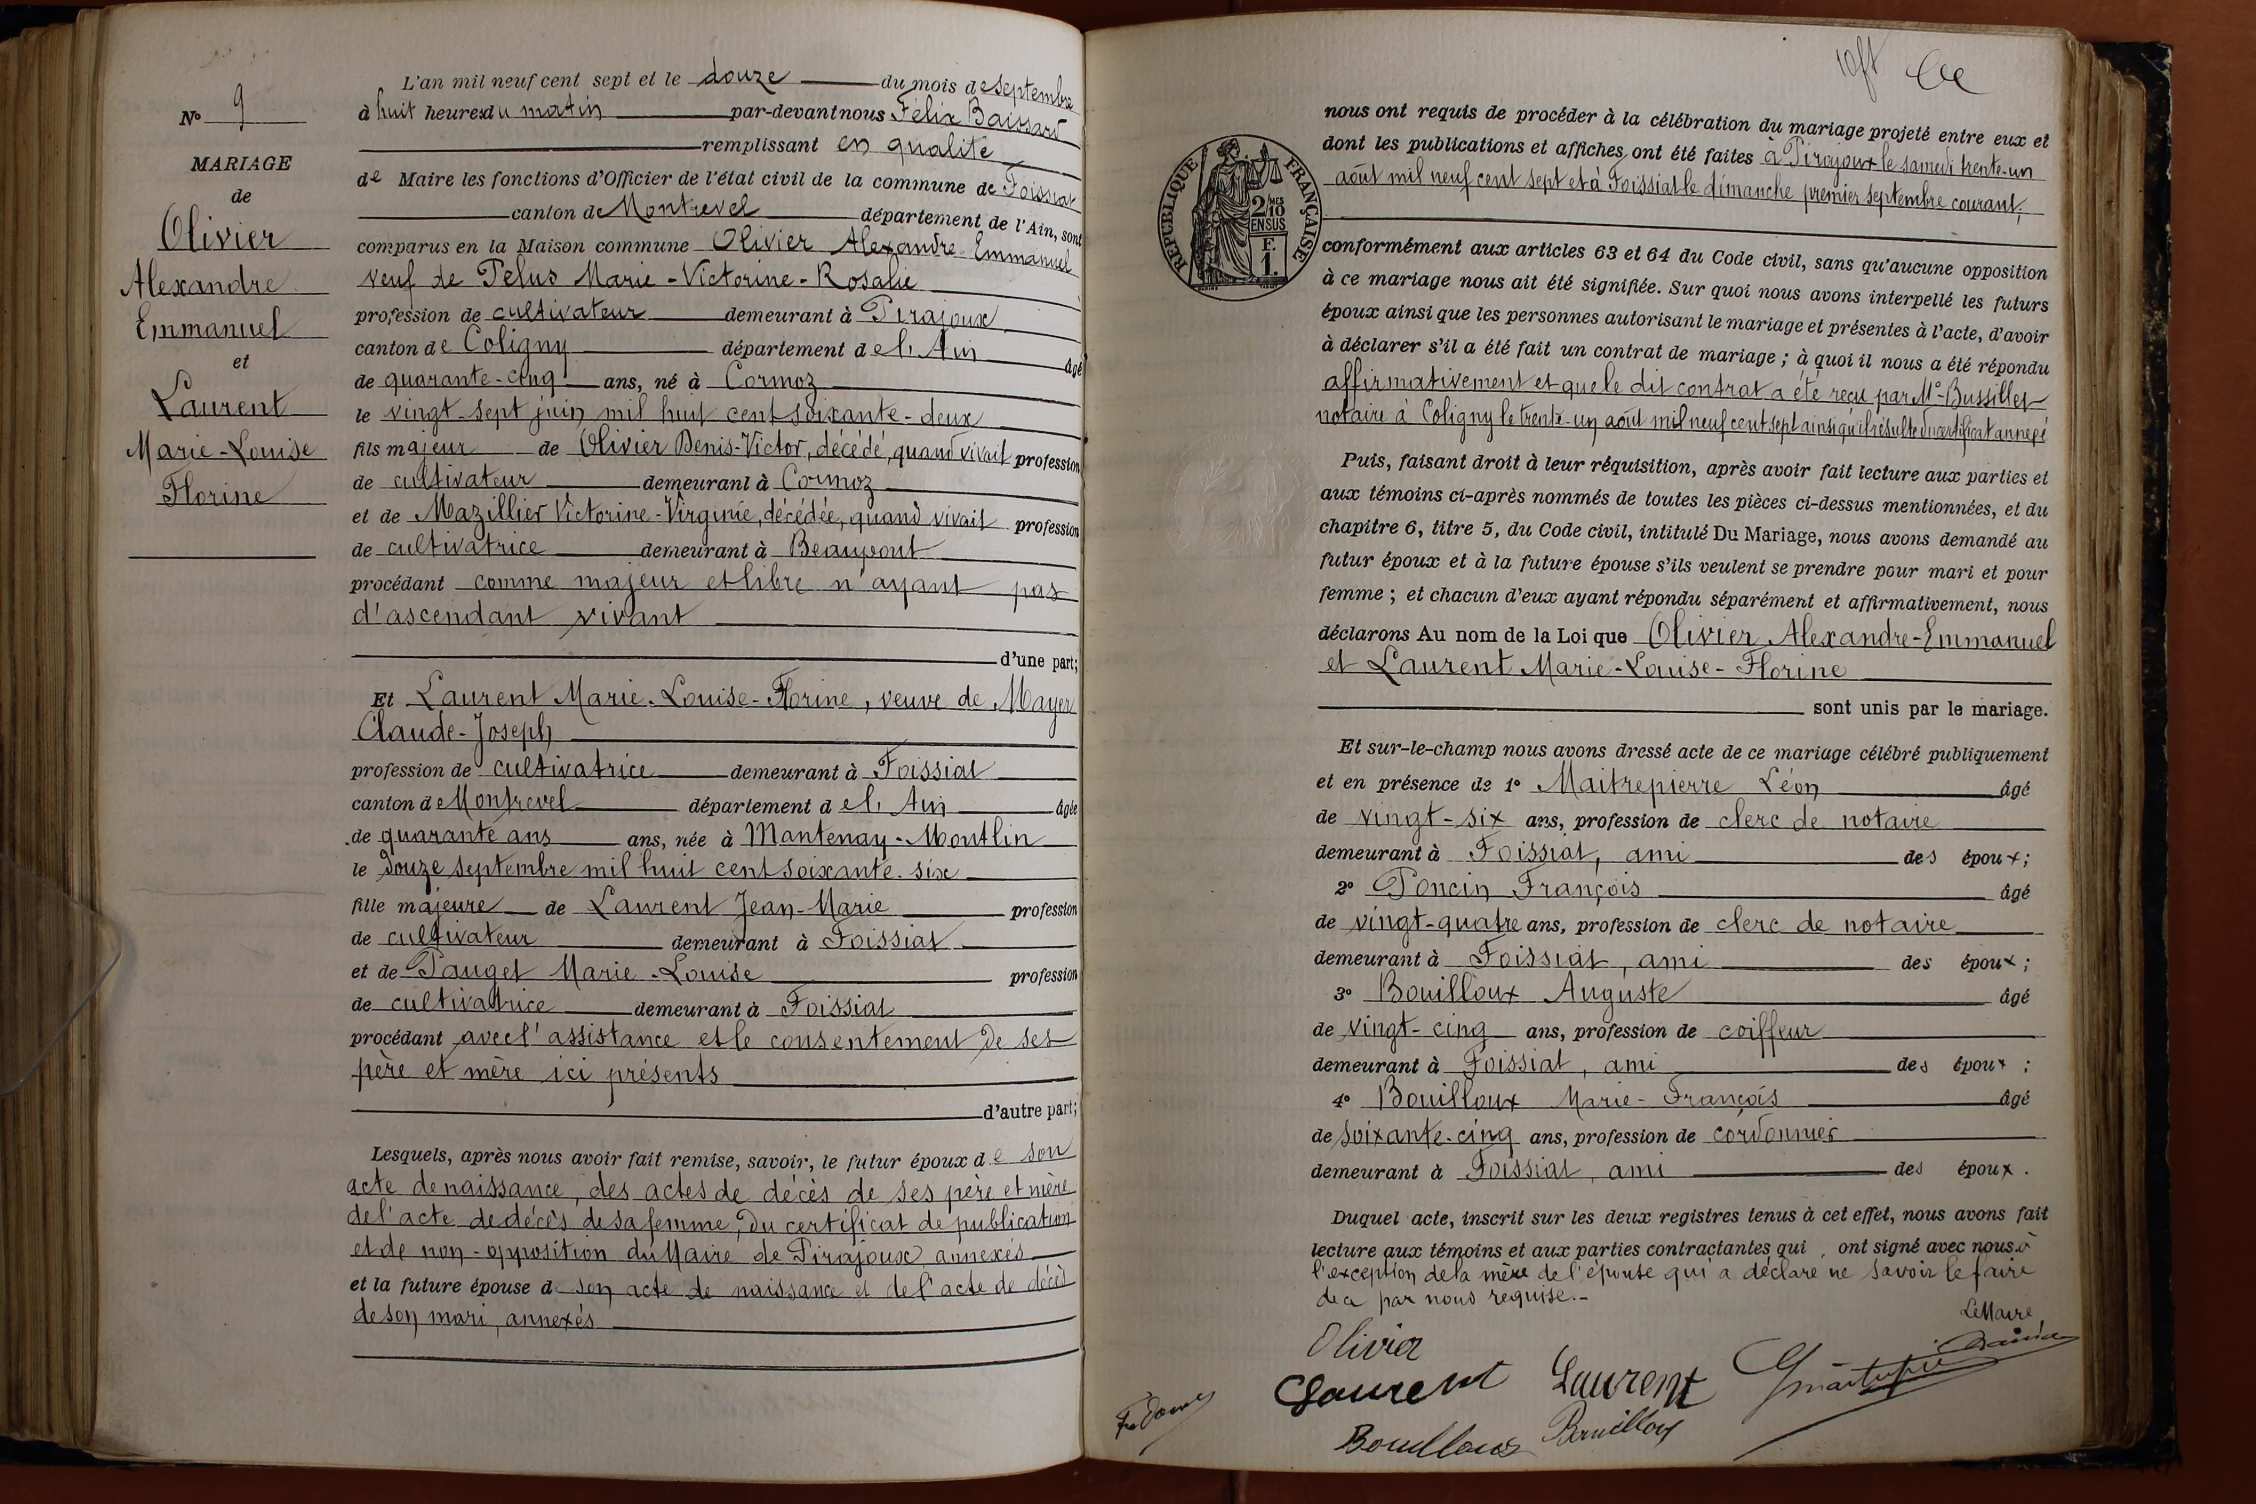 N° 9
MARIAGE
de
Olivier
Alexandre
Emmanuel
et
Laurent
Marie-Louise
Florine
L'an mil neuf cent sept et le douze du mois de septembre
à huit heures du matin par-devant nous Félix Baissard
remplissant en qualité
de Maire les fonctions d'Officier de l'état civil de la commune de Foissiat
canton de Montrevel département de l'Ain, sont
comparus en la Maison commune Olivier Alexandre-Emmanuel
veuf de Pelus Marie-Victorine-Rosalie
profession de cultivateur demeurant à Pirajoux
canton de Coligny département de l'Ain âgé
de quarante-cinq ans, né à Cormoz
le vingt-sept juin mil huit cent soixante-deux
fils majeur de Olivier Denis-Victor, décédé, quand vivait profession
de cultivateur demeurant à Cormoz
et de Mazillier Victorine-Virginie, décédée, quand vivait profession
de cultivatrice demeurant à Beaupont
procédant comme majeur et libre n'ayant pas
d'ascendant vivant
d'une part;
Et Laurent Marie-Louise-Florine, veuve de Mayer
Claude-Joseph
profession de cultivatrice demeurant à Foissiat
canton de Montrevel département de l'Ain âgée
de quarante ans ans, née à Mantenay-Montlin
le douze septembre mil huit cent soixante-six
fille majeure de Laurent Jean-Marie profession
de cultivateur demeurant à Foissiat
et de Pauget Marie-Louise profession
de cultivatrice demeurant à Foissiat
procédant avec l'assistance et le consentement de ses
père et mère ici présents
d'autre part;
Lesquels, après nous avoir fait remise, savoir, le futur époux de son
acte de naissance, des actes de décès de ses père et mère
de l'acte de décès de sa femme, du certificat de publication
et de non-opposition du Maire de Pirajoux annexés
et la future épouse de son acte de naissance et de l'acte de décès
de son mari, annexés
RÉPUBLIQUE FRANÇAISE
2 MES
10
EN SUS
F.
1.
nous ont requis de procéder à la célébration du mariage projeté entre eux et
dont les publications et affiches ont été faites à Pirajoux le samedi trente-un
août mil neuf cent sept et à Foissiat le dimanche premier septembre courant;
conformément aux articles 63 et 64 du Code civil, sans qu'aucune opposition
à ce mariage nous ait été signifiée. Sur quoi nous avons interpellé les futurs
époux ainsi que les personnes autorisant le mariage et présentes à l'acte, d'avoir
à déclarer s'il a été fait un contrat de mariage; à quoi il nous a été répondu
affirmativement et que le dit contrat a été reçu par Me Bussillet
notaire à Coligny le trente-un août mil neuf cent sept ainsi qu'il résulte du certificat annexé
Puis, faisant droit à leur réquisition, après avoir fait lecture aux parties et
aux témoins ci-après nommés de toutes les pièces ci-dessus mentionnées, et du
chapitre 6, titre 5, du Code civil, intitulé Du Mariage, nous avons demandé au
futur époux et à la future épouse s'ils veulent se prendre pour mari et pour
femme; et chacun d'eux ayant répondu séparément et affirmativement, nous
déclarons Au nom de la Loi que Olivier Alexandre-Emmanuel
et Laurent Marie-Louise-Florine
sont unis par le mariage.
Et sur-le-champ nous avons dressé acte de ce mariage célébré publiquement
et en présence de 1° Maitrepierre Léon âgé
de vingt-six ans, profession de clerc de notaire
demeurant à Foissiat, ami des époux;
2° Poncin François âgé
de vingt-quatre ans, profession de clerc de notaire
demeurant à Foissiat, ami des époux;
3° Bouilloux Auguste âgé
de vingt-cinq ans, profession de coiffeur
demeurant à Foissiat, ami des époux;
4° Bouilloux Marie-François âgé
de soixante-cinq ans, profession de cordonnier
demeurant à Foissiat, ami des époux.
Duquel acte, inscrit sur les deux registres tenus à cet effet, nous avons fait
lecture aux témoins et aux parties contractantes qui ont signé avec nous à
l'exception de la mère de l'épouse qui a déclaré ne savoir le faire
de ce par nous requise.-
Le Maire
Olivier
Laurent Laurent
Bouilloux Bouilloux